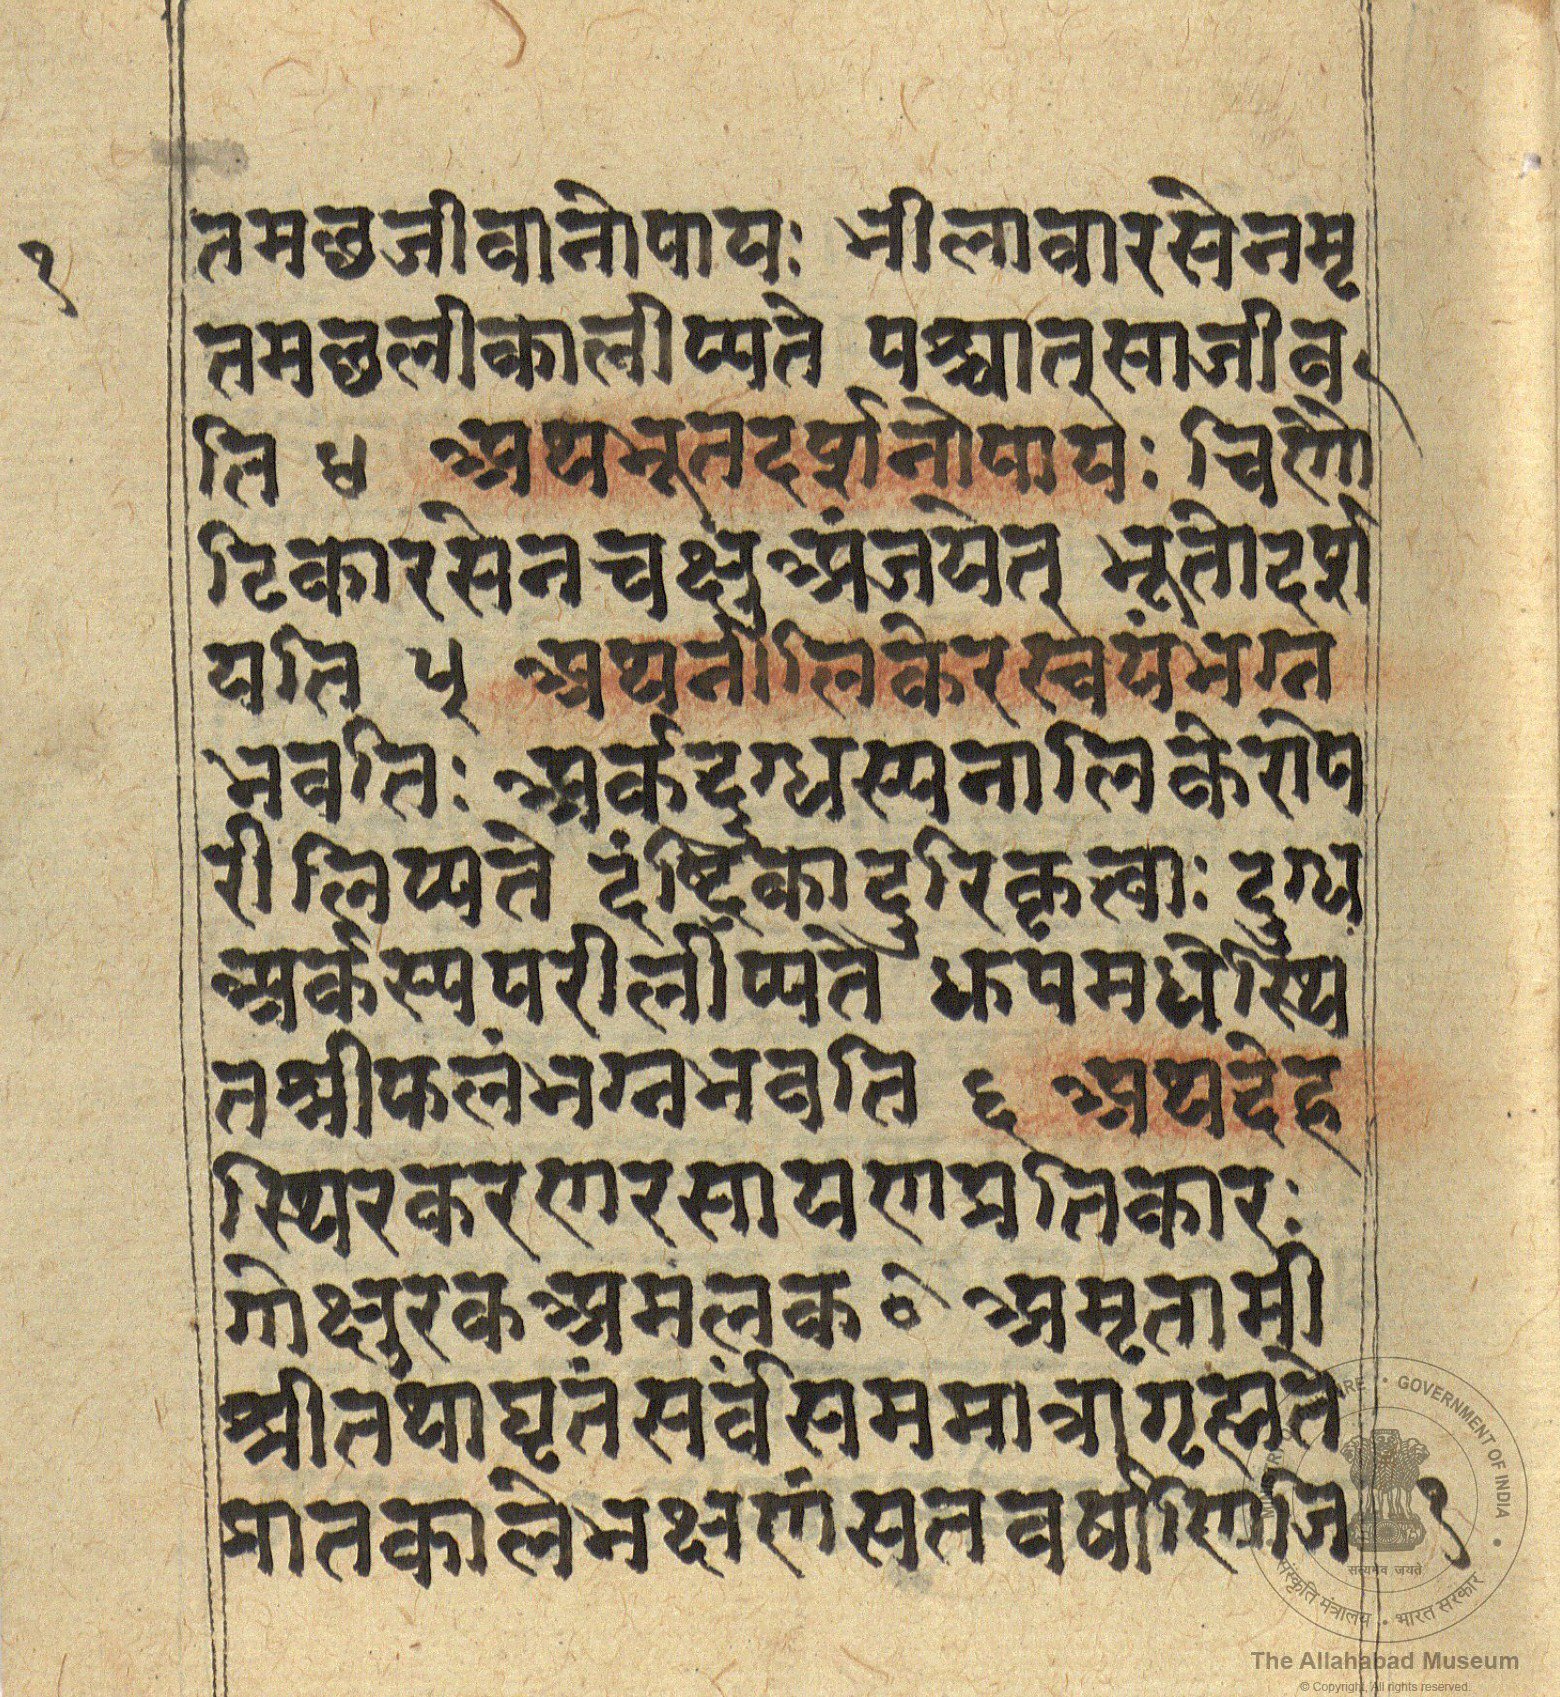 १
तमछजीवानोपायः भीलावारसेनमृ
तमछलीकालीप्यते पश्चात्साजीव
ति ४ अथभूतदर्शनोपायेः चिर्णो
टिकारसेनचक्षुअंजयेत् भूतोदर्श
यति ५ अथनीलिकेरस्वयंभग्न
भवतिः अर्कदुग्धस्यनालिकेरोप
रीलिप्यते दंष्ट्रिकादुरिकृत्वाः दुग्ध
अर्कस्यपरीलीप्यते धूपमधेस्थि
तश्रीफलंभग्नभवति ६ अथदेह
स्थिरकरणरसायणप्रतिकारः
गोक्षुरकअमलक० अमृतामी
श्रीतंथाघृतंसर्वसममात्रांगृह्यते
प्रातकालेभक्षणंसतवर्षाणिजि १
MINISTRY OF CULTURE • GOVERNMENT OF INDIA
सत्यमेव जयते
संस्कृति मंत्रालय • भारत सरकार
The Allahabad Museum
© Copyright, All rights reserved.